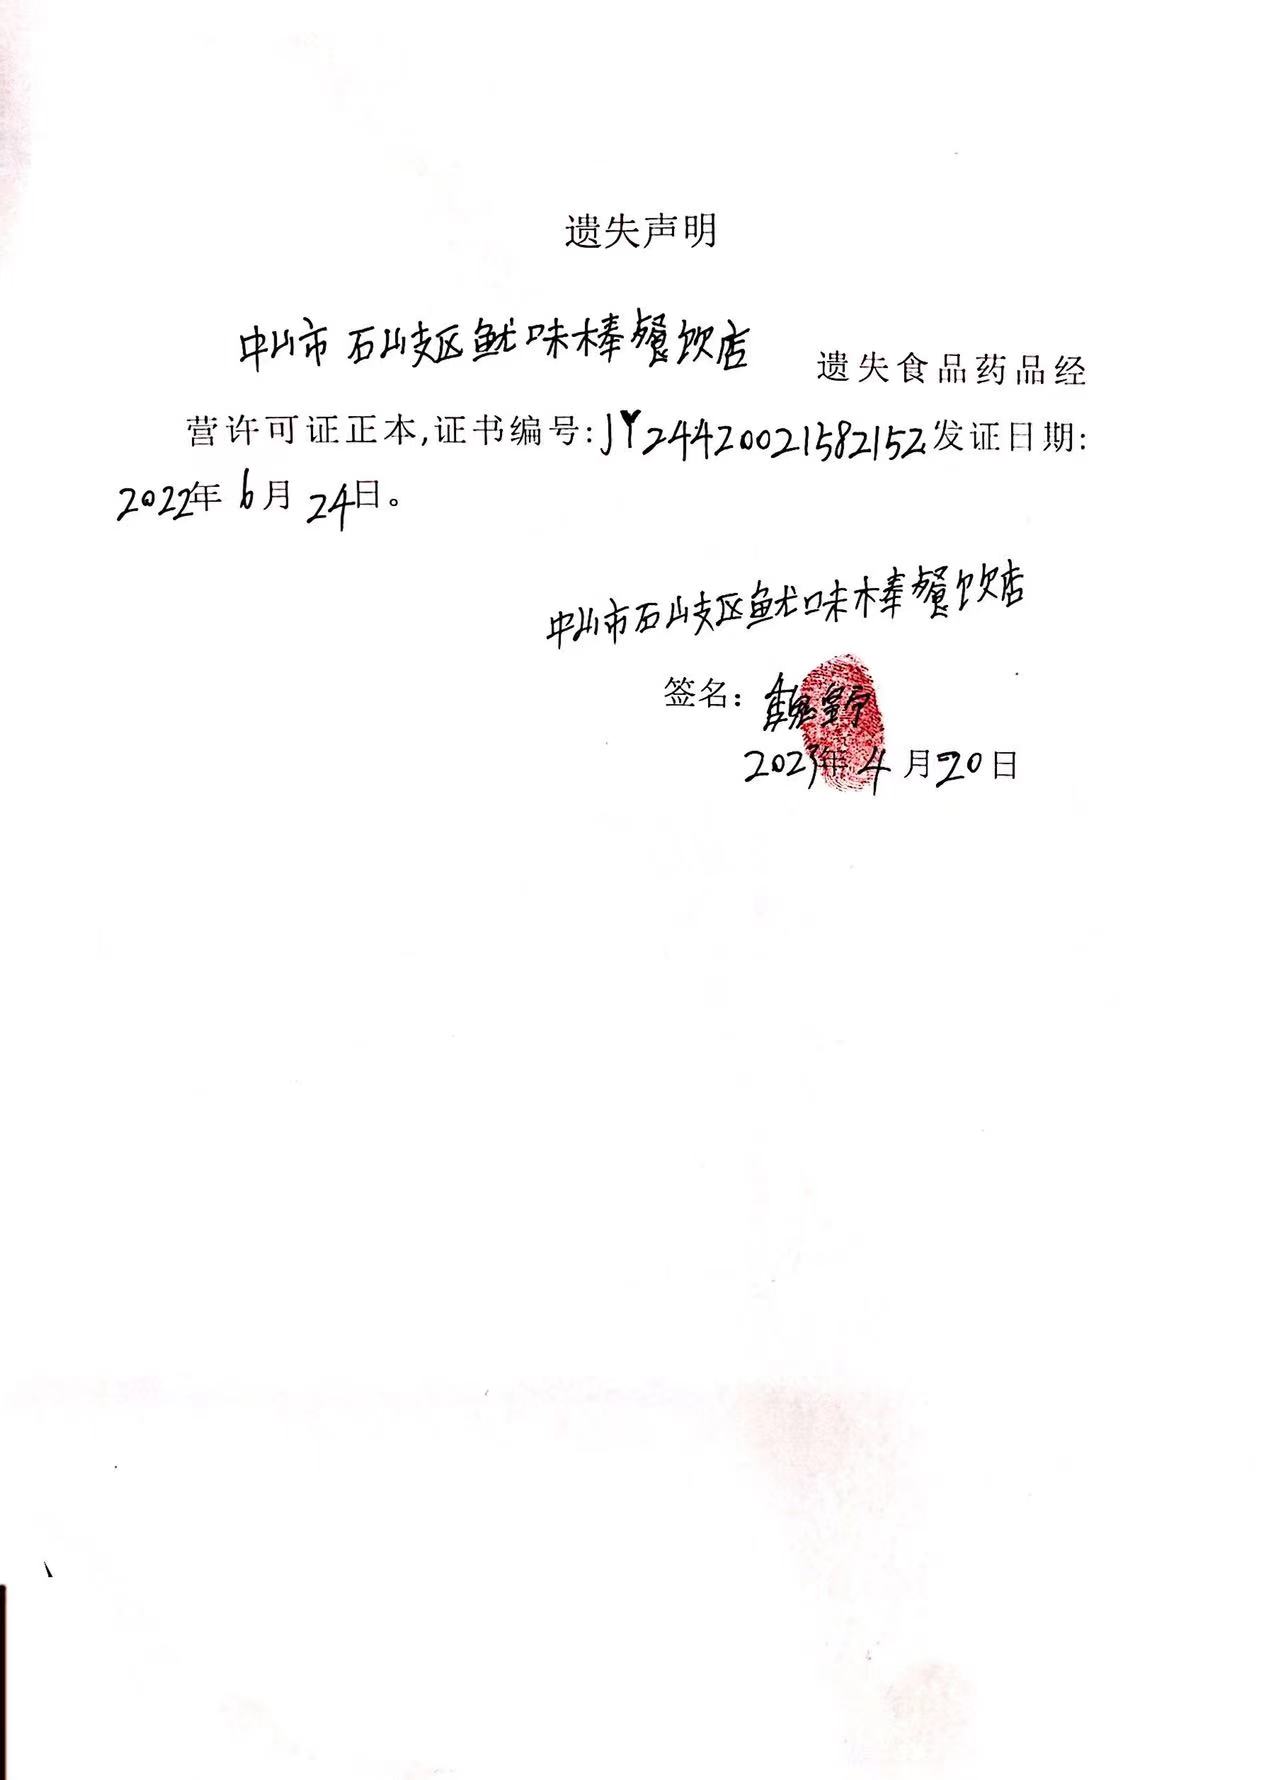 遗失声明
中山市石岐区鱿味棒餐饮店 遗失食品药品经
营许可证正本,证书编号:JY24420021582152发证日期:
2022年6月24日。
中山市石岐区鱿味棒餐饮店
签名:魏
2023年4月20日